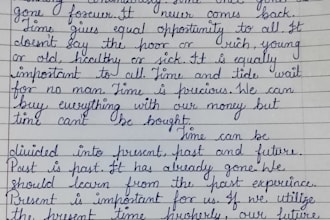 gone forever. It never comes back.
Time gives equal opportunity to all. It
doesn't say the poor or rich, young
or old, healthy or sick. It is equally
important to all. Time and tide wait
for no man. Time is precious. We can
buy everything with our money but
time cant be bought.
Time can be
divided into present, past and future.
Past is past. It has already gone. We
should learn from the past experience.
Present is important for us. If we utilize
the present time properly, our future